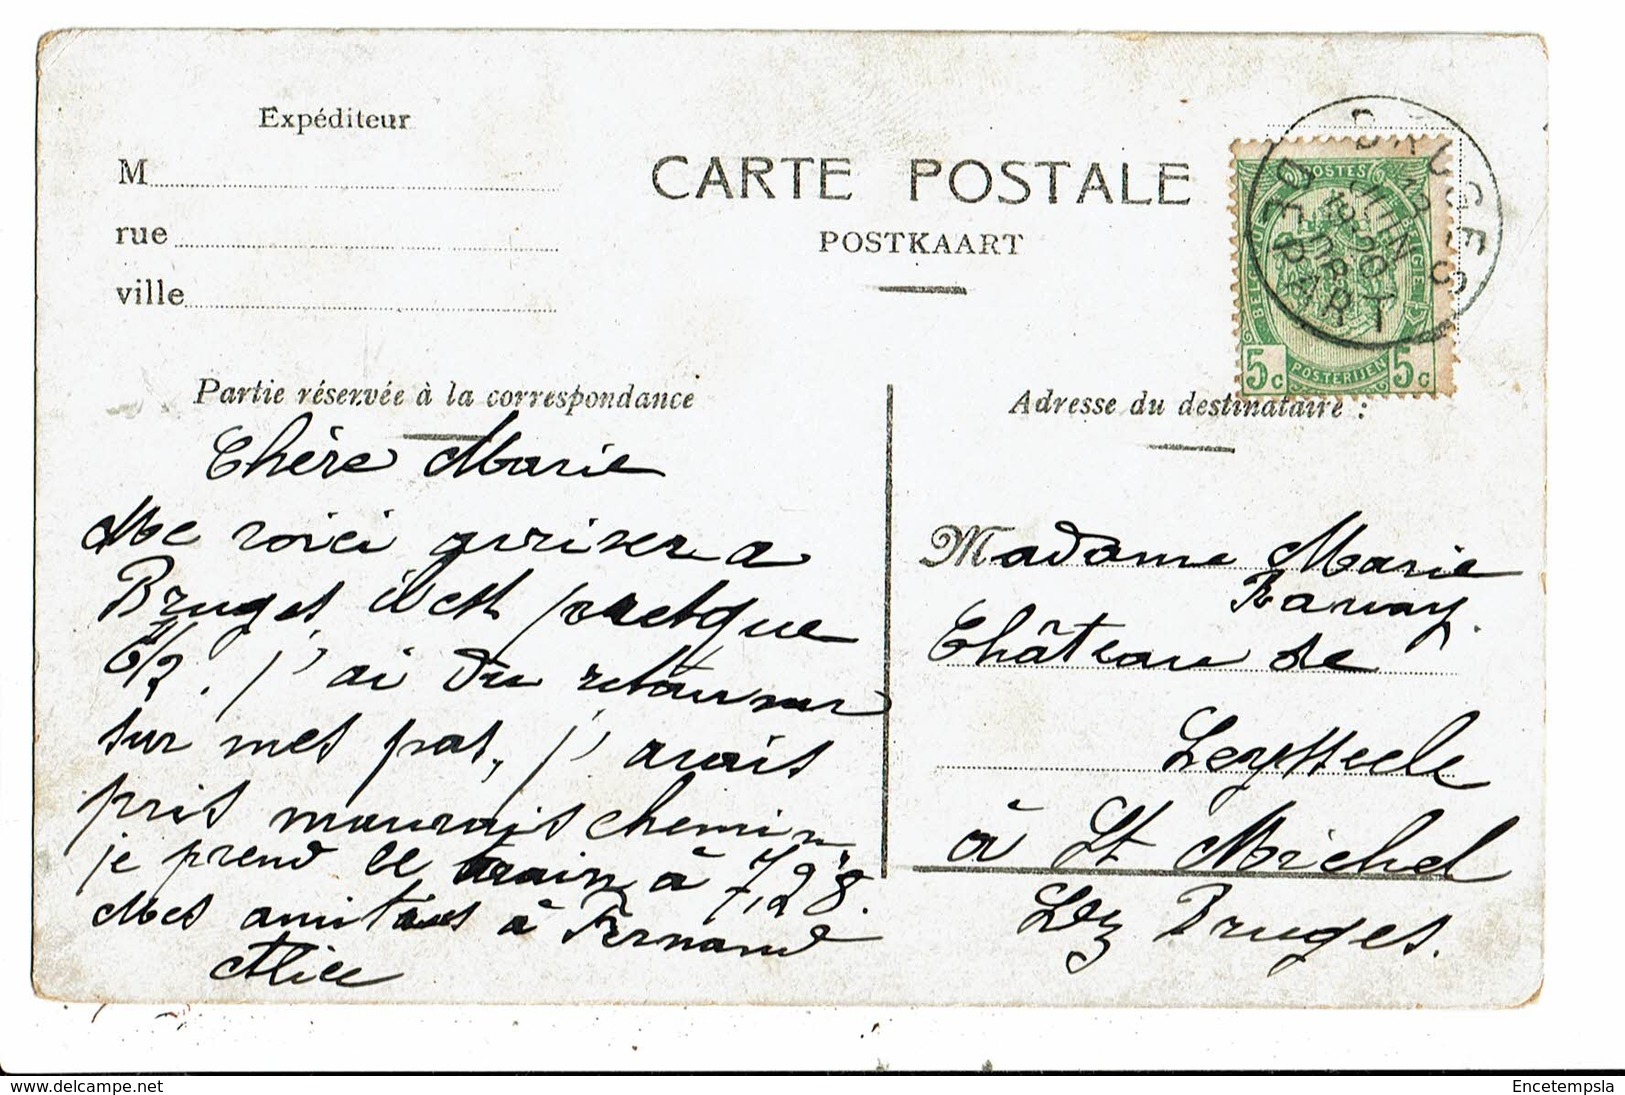 Expéditeur
M
rue
ville
CARTE POSTALE
POSTKAART
BRUGES
13
JUIN
19-20
08
DEPART
POSTES
BELGIE
POSTERIJEN
5c 5c
Partie réservée à la correspondance
Adresse du destinataire :
Chère Marie
Me voici arrivera
Bruges il est presque
6/2. j'ai du retourner
sur mes pas, j'avais
pris mauvais chemin,
je prend le train à 7,28.
Mes amitiés à Fernand
Alice
Madame Marie
Raway.
Château de
Leysseele
à St Michel
Lez Bruges.
delcampe.net
Encetempsla